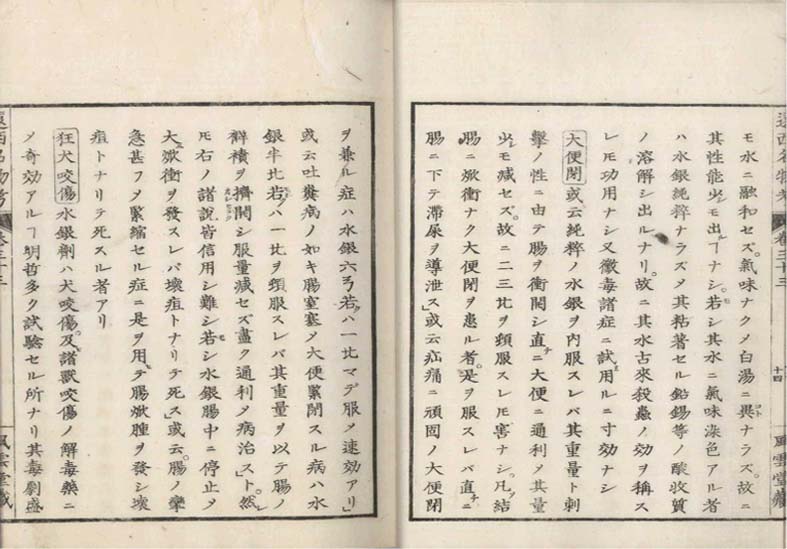 遠西名物考 巻三十三 十四 風雲堂藏
モ水ニ融和セズ。氣味ナクメ白湯ニ異ナラズ。故ニ
其性能少モ出ルヿナシ。若シ其水ニ氣味染色アル者
ハ水銀純粹ナラズメ其粘著セル鉛錫等ノ酸收質
ノ溶解シ出ルナリ。故ニ其水古來殺蟲ノ効ヲ稱ス
レモ功用ナシ又黴毒諸症ニ試用ルニ寸効ナシ
大便閉 或云純粹ノ水銀ヲ内服スレバ其重量ト刺
擊ノ性ニ由テ腸ヲ衝開シ直ニ大便ニ通利メ其量
少モ減セズ。故ニ二三比ヲ頓服スレモ害ナシ。凡ソ結
腸ニ焮衝ナク大便閉ヲ患ル者。是ヲ服スレバ直ニ
腸ニ下テ滯屎ヲ導泄ス」或云疝痛ニ頑固ノ大便閉
ヲ兼ル症ハ水銀六弓若クハ一比マデ服メ速効アリ」
或云吐糞病ノ如キ腸窒塞メ大便緊閉スル病ハ水
銀半比若クハ一比ヲ頓服スレバ其重量ヲ以テ腸ノ
襞積ヲ擠開シ服量減セズ盡ク通利メ病治スト。然レ
モ右ノ諸説皆信用シ難シ若シ水銀腸中ニ停止メ
大ニ焮衝ヲ發スレバ壞疽トナリテ死ス」或云。腸ノ攣
急甚フメ緊縮セル症ニ是ヲ用テ腸焮腫ヲ發シ壞
疽トナリテ死スル者アリ
狂犬咬傷 水銀劑ハ犬咬傷。及諸獸咬傷ノ解毒藥ニ
メ奇効アルヿ明哲多ク試驗セル所ナリ其毒劇盛
遠西名物考 巻三十三 風雲堂藏